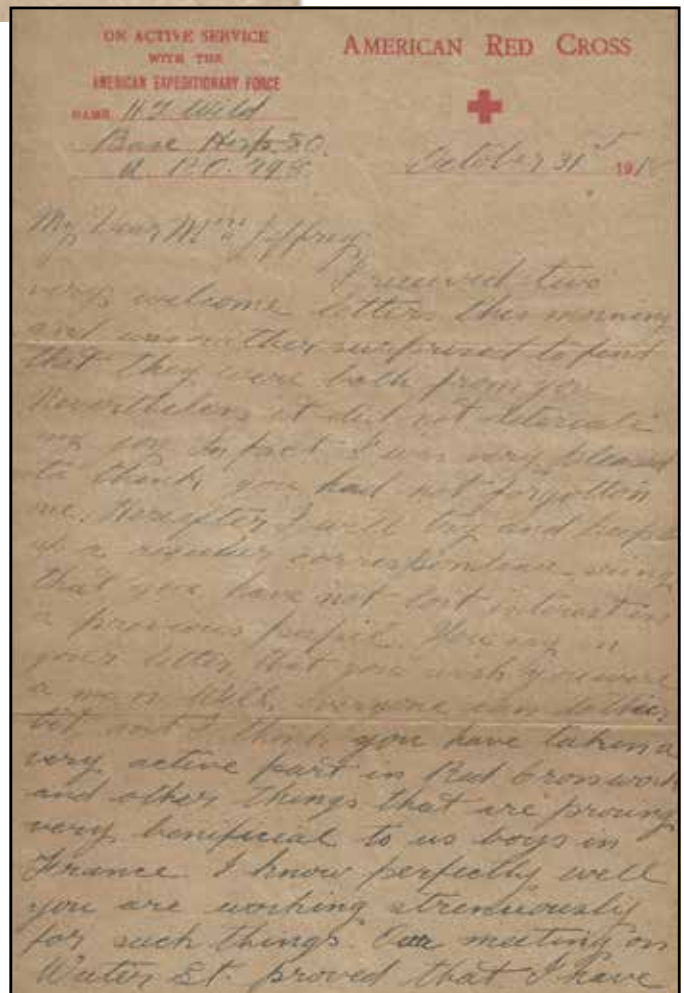 ON ACTIVE SERVICE
WITH THE
AMERICAN EXPEDITIONARY FORCE
AMERICAN RED CROSS
NAME H J Wild
Base Hosp. 50.
A. P. O. 798.
October 31st 191
My Dear Mrs Jeffrey
I received two
very welcome letters this morning
and was rather surprised to find
that they were both from you
Nevertheless it did not
my joy In fact I was very pleased
to think you had not forgotten
me. Hereafter I will try and keep
up a regular correspondence seeing
that you have not lost interest in
a previous pupil. You say in
your letter that you wish you were
a man Well, everyone can do their
bit, and I think you have taken a
very active part in Red Cross work
and other things that are proving
very benificial to us boys in
France I know perfectly well
you are working strenuously
for such things. Our meeting on
Water St. proved that I have